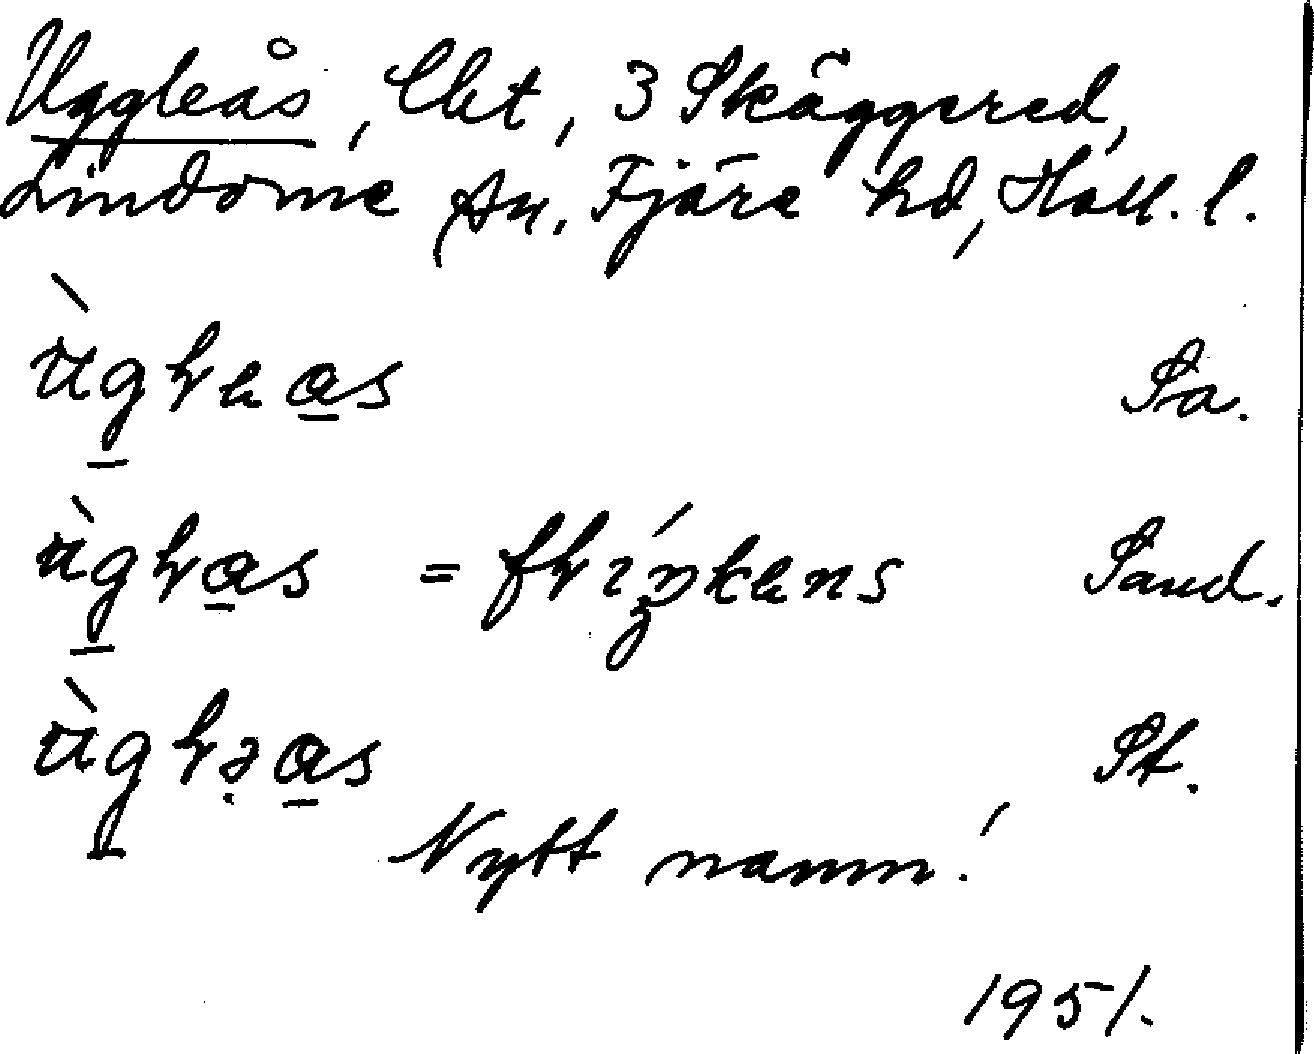 Uggleås, lht, 3 Skäggered,
Lindome sn, Fjäre hd, Hall. l.
ùglɐas Sa.
ùglas = flíŋkɐns Sand.
ùgləas St.
Nytt namn!
1951.